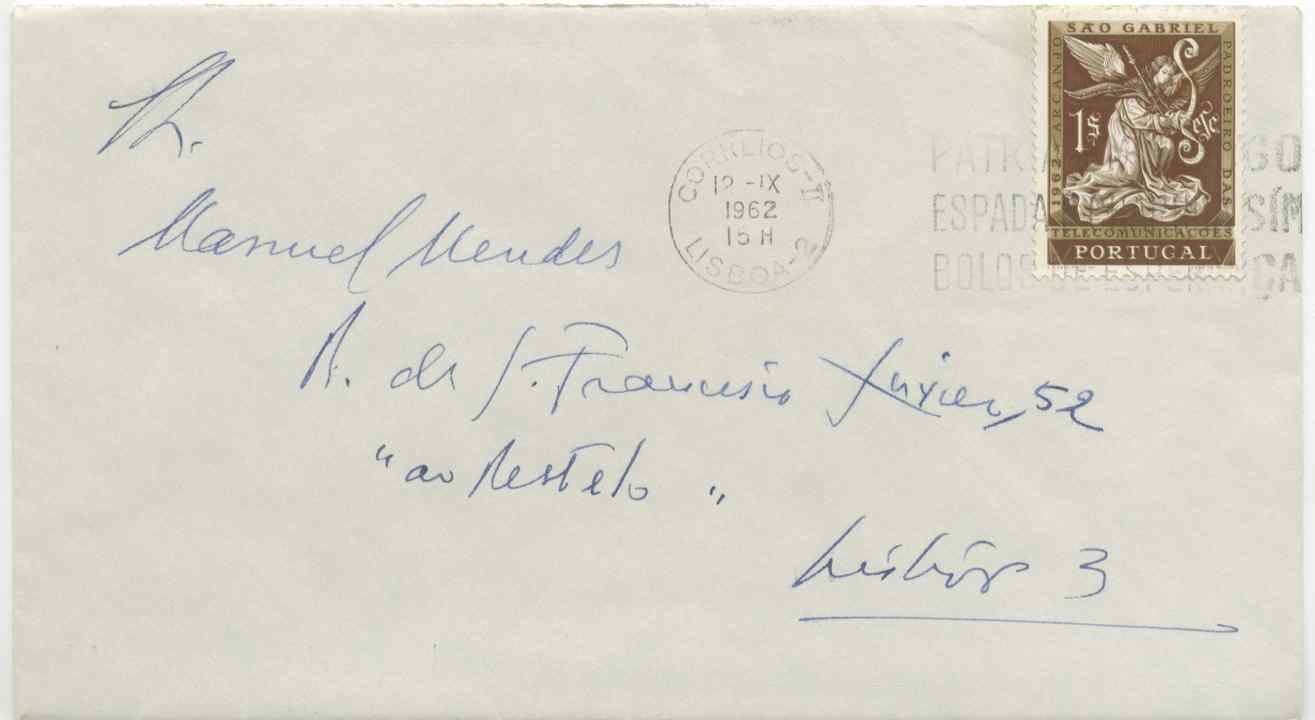 SÃO GABRIEL
1962 - ARCANJO
PADROEIRO DAS
1$ esc
TELECOMUNICAÇÕES
PORTUGAL
CORREIOS-II
-IX
1962
15 H
LISBOA-2
PATRI GO
ESPADA SÍM
BOLOS DE ESPERANÇA
Manuel Mendes
R. de S. Francisco Xavier, 52
"ao Restelo"
Lisboa 3